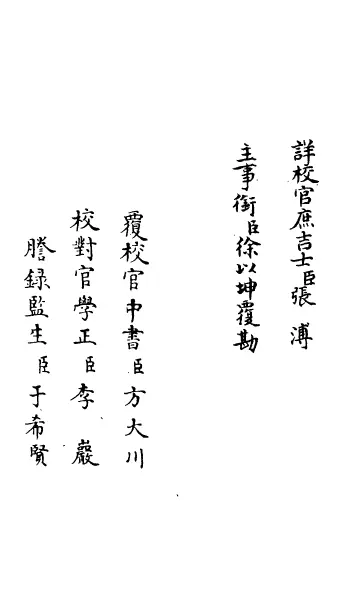 詳校官庶吉士臣張溥
主事銜臣徐以坤覆勘
覆校官中書臣方大川
校對官學正臣李巖
謄錄監生臣于希賢